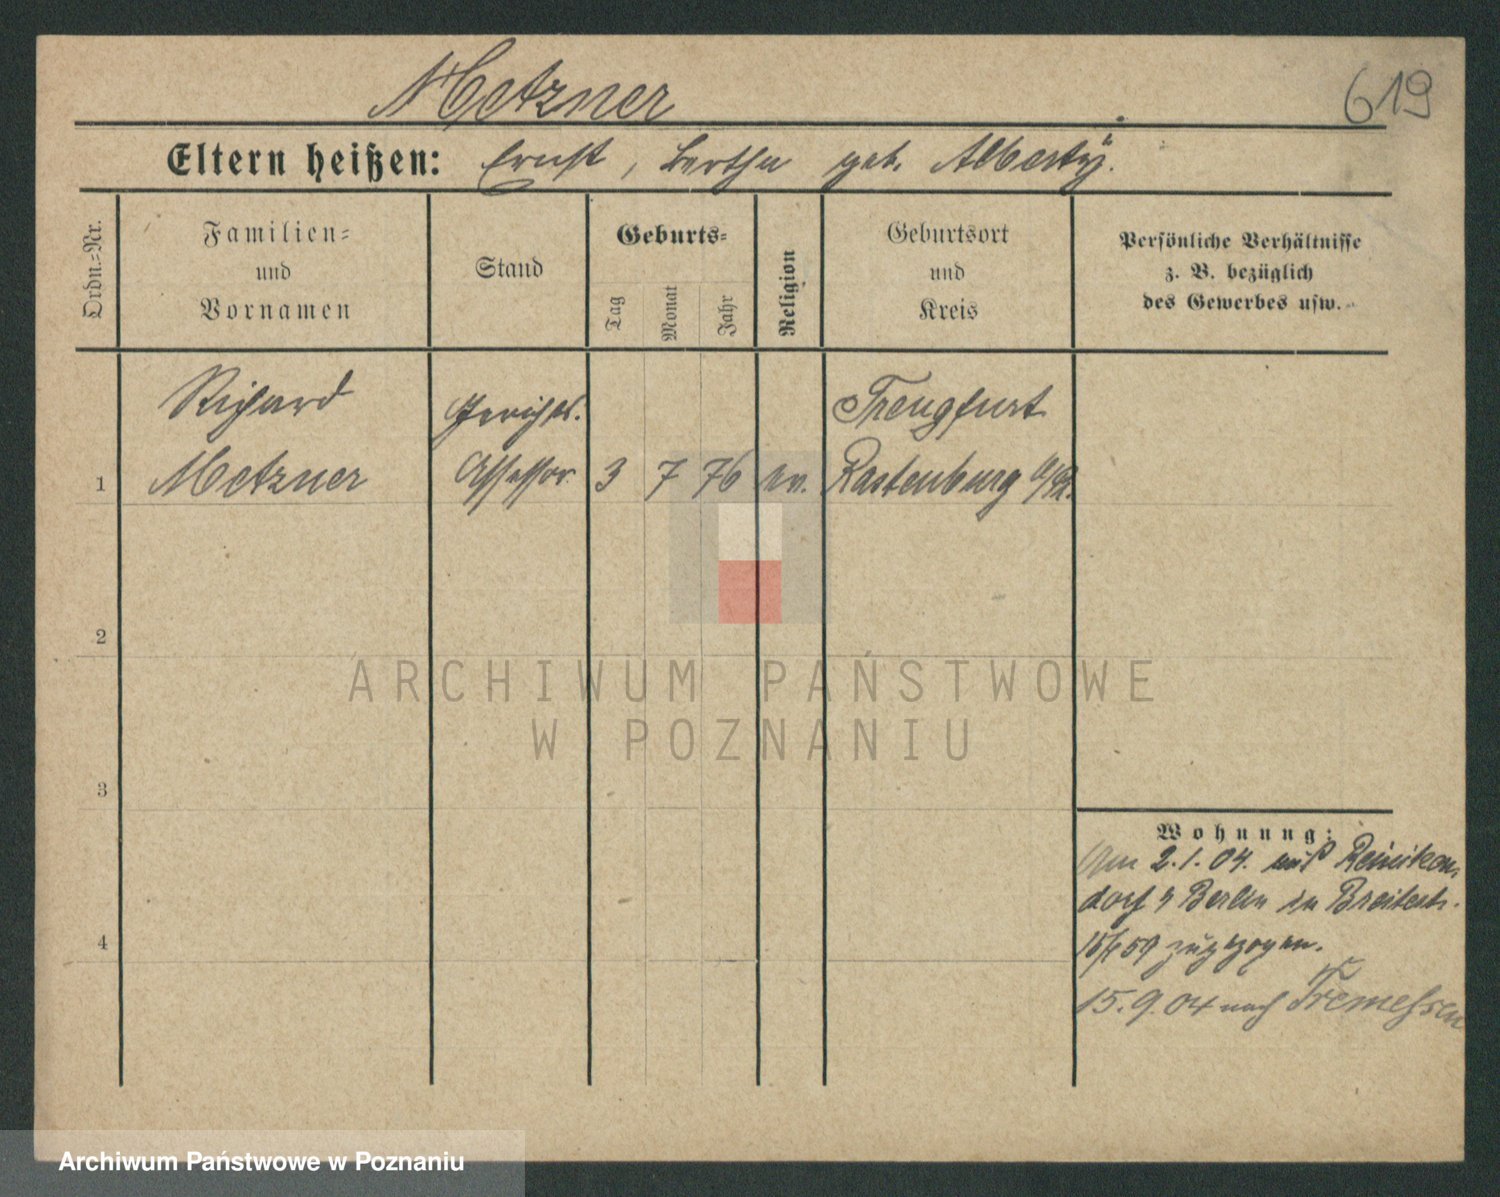 Metzner
619
Eltern heißen: Ernst, Bertha geb. Alberty.
Ordn.-Nr.
Familien-
und
Vornamen
Stand
Geburts-
Tag
Monat
Jahr
Religion
Geburtsort
und
Kreis
Persönliche Verhältnisse
z. B. bezüglich
des Gewerbes usw.
Richard Gerichts.
1 Metzner Assessor 3 7 76 ev. Rastenburg
2
3
4
Wohnung:
Am 2.1.04. aus Reinicken-
dorf b Berlin in Breitestr.
zugezogen.
15.9.04 nach Tremessen
ARCHIWUM PAŃSTWOWE
W POZNANIU
Archiwum Państwowe w Poznaniu